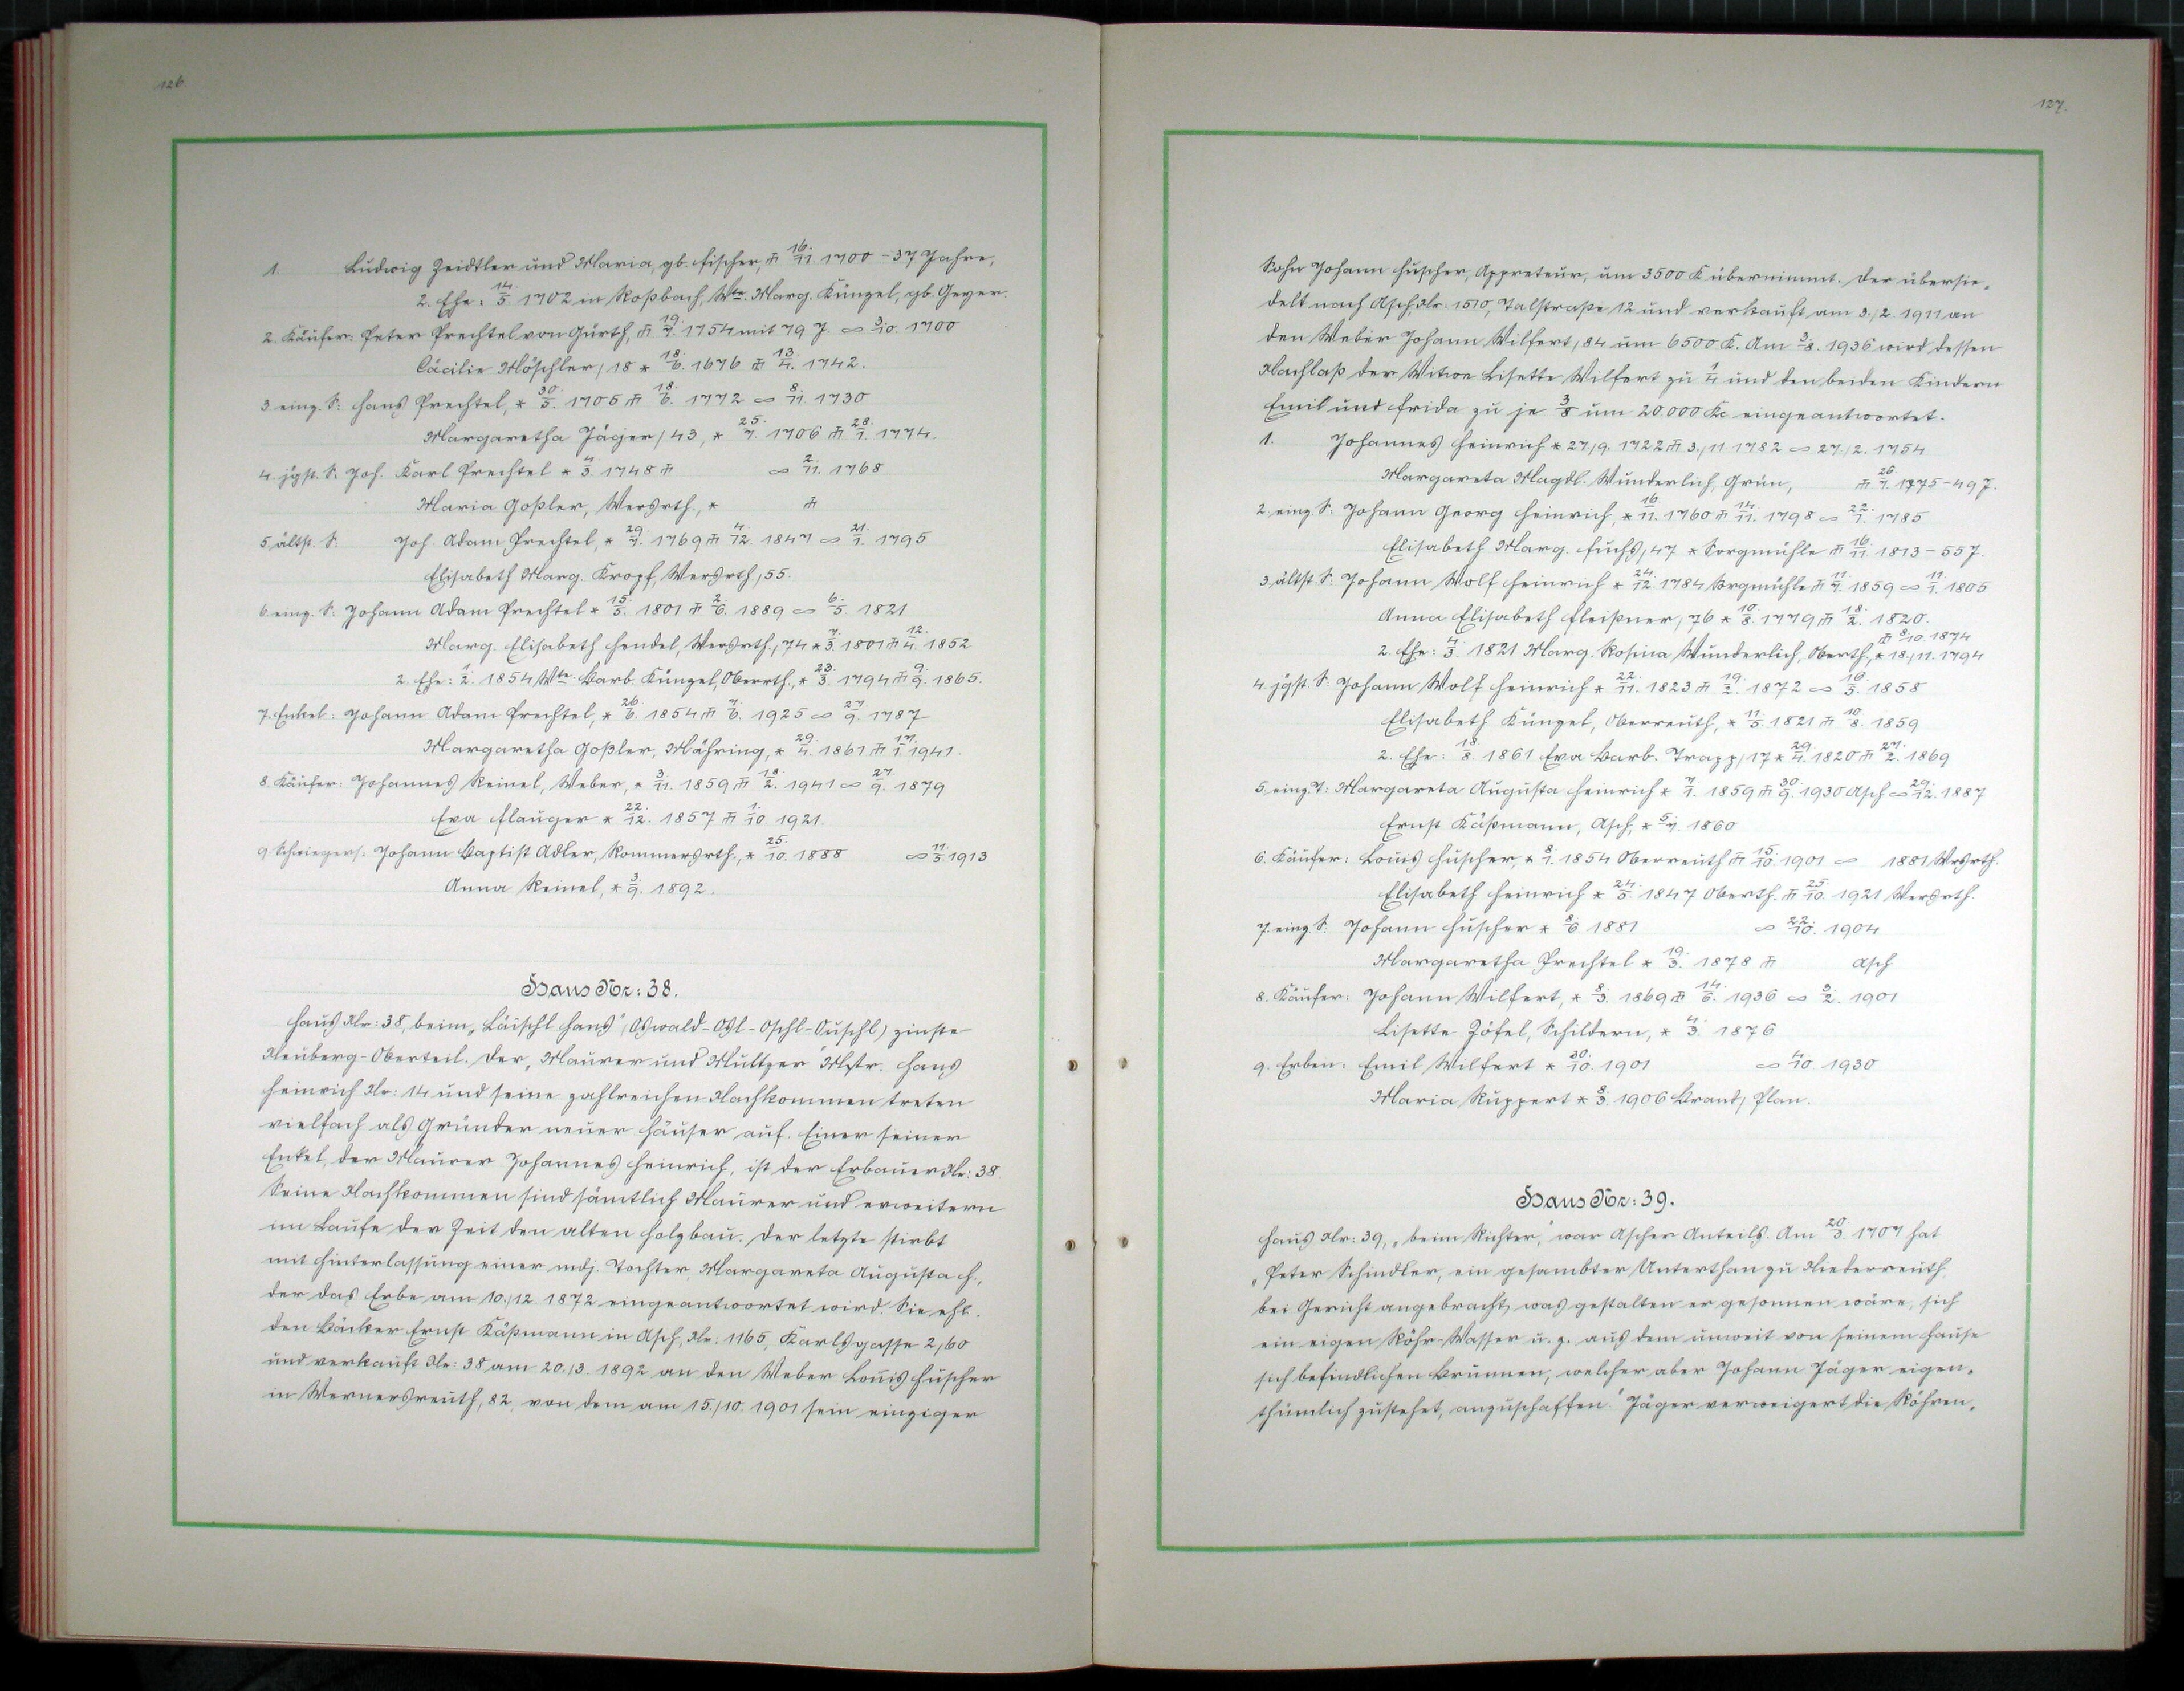 126
1. Ludwig Zeidtler und Maria, gb. Fischer, 16./11. 1700 - 37 Jahre,
2. Ehe: 14./5. 1702 in Roßbach, Wte. Marg. Künzel, gb. Geyer.
2. Käufer: Peter Prechtel von Gürth, 19./7. 1754 mit 79 J. ∞ 3./10. 1700
Cäcilie Möschler, 18 * 18./6. 1676 13./4. 1742.
3. einz. S: Hans Prechtel, * 30./5. 1705 18./6. 1772 ∞ 8./11. 1730
Margaretha Jäger, 43, * 25./7. 1706 28./1. 1774.
4. jgst. S: Joh. Karl Prechtel * 4./3. 1748 ∞ 2./11. 1768
Maria Goßler, Wersrth., *
5. ältst. S: Joh. Adam Prechtel, * 29./7. 1769 4./12. 1847 ∞ 21./1. 1795
Elisabeth Marg. Kropf, Wersrth., 55.
6. einz. S: Johann Adam Prechtel * 15./5. 1801 2./6. 1889 ∞ 6./5. 1821
Marg. Elisabeth Hendel, Wersrth., 74 * 7./3. 1801 12./4. 1852
2. Ehe: 1./2. 1854 Wte. Barb. Künzel, Oberrth., * 23./3. 1794 9./9. 1865.
7. Enkel: Johann Adam Prechtel, * 26./6. 1854 7./6. 1925 ∞ 27./9. 1787
Margaretha Goßler, Mähring, * 29./4. 1861 17./1. 1941.
8. Käufer: Johannes Reinel, Weber, * 3./11. 1859 18./2. 1941 ∞ 27./9. 1879
Eva Flauger * 22./12. 1857 1./10. 1921.
9. Schwiegers: Johann Baptist Adler, Rommersrth., * 25./10. 1888 ∞ 11./5. 1913
Anna Reinel, * 3./9. 1892.
Haus Nr: 38.
Haus Nr: 38, beim „Läischl Hans" (Oswald-Osl-Oschl-Ouschl) zinste
Neuberg-Oberteil. Der „Maurer und Multzer" Mstr. Hans
Heinrich Nr: 14 und seine zahlreichen Nachkommen treten
vielfach als Gründer neuer Häuser auf. Einer seiner
Enkel, der Maurer Johannes Heinrich, ist der Erbauer Nr: 38.
Seine Nachkommen sind sämtlich Maurer und erweitern
im Laufe der Zeit den alten Holzbau. Der letzte stirbt
mit Hinterlassung einer mdj. Tochter, Margareta Augusta H.,
der das Erbe am 10./12. 1872 eingeantwortet wird. Sie ehl.
den Bäcker Ernst Käßmann in Asch, Nr: 1165, Karlsgasse 2, 60
und verkauft Nr: 38 am 20./3. 1892 an den Weber Louis Huscher
in Wernersreuth, 82, von dem am 15./10. 1901 sein einziger
127.
Sohn Johann Huscher, Appreteur, um 3500 K übernimmt. Der übersie-
delt nach Asch, Nr: 1510, Talstraße 12 und verkauft am 3./2. 1911 an
den Weber Johann Wilfert, 84 um 6500 K. Am 3./8. 1936 wird dessen
Nachlaß der Witwe Lisette Wilfert zu 1/4 und den beiden Kindern
Emil und Frida zu je 3/8 um 20 000 Kc eingeantwortet.
1. Johannes Heinrich * 27./9. 1722 3./11. 1782 ∞ 27./2. 1754
Margareta Magdl. Wunderlich, Grün, 26./7. 1775 - 49 J.
2. einz. S: Johann Georg Heinrich, * 16./11. 1760 14./11. 1798 ∞ 22./1. 1785
Elisabeth Marg. Fuchs, 47 * Sorgmühle 16./11. 1813 - 55 J.
3. ältst. S: Johann Wolf Heinrich * 24./12. 1784 Sorgmühle 11./7. 1859 ∞ 11./1. 1805
Anna Elisabeth Fleißner, 76 * 10./8. 1779 18./2. 1820.
2. Ehe: 4./3. 1821 Marg. Rosina Wunderlich, Oberth., * 18./11. 1794 8./10. 1874
4. jgst. S. Johann Wolf Heinrich * 22./11. 1823 19./2. 1872 ∞ 16./3. 1858
Elisabeth Künzel, Oberreuth, * 11./5. 1821 10./8. 1859
2. Ehe: 18./8. 1861 Eva Barb. Trapp, 17 * 29./4. 1820 27./2. 1869
5. einz. T: Margareta Augusta Heinrich * 7./1. 1859 30./9. 1930 Asch ∞ 29./12. 1887
Ernst Käßmann, Asch, * 5./7. 1860
6. Käufer: Louis Huscher, * 8./1. 1854 Oberreuth 15./10. 1901 ∞ 1881 Wrsrth.
Elisabeth Heinrich * 24./5. 1847 Oberth. 25./10. 1921 Wersrth.
7. einz. S: Johann Huscher * 8./6. 1881 ∞ 22./10. 1904
Margaretha Prechtel * 19./3. 1878 Asch
8. Käufer: Johann Wilfert, * 8./3. 1869 14./6. 1936 ∞ 3./2. 1901
Lisette Zöfel, Schildern, * 4./3. 1876
9. Erben: Emil Wilfert * 30./10. 1901 ∞ 4./10. 1930
Maria Ruppert * 8./3. 1906 Brand, Plan.
Haus Nr: 39.
Haus Nr: 39, „beim Richter," war Ascher Anteils. Am 20./3. 1707 hat
„Peter Schindler, ein gesambter Unterthan zu Niederreuth
bei Gericht angebracht, was gestalten er gesonnen wäre, sich
ein eigen Röhr-Wasser u. z. aus dem unweit von seinem Hause
sich befindlichen Brunnen, welcher aber Johann Jäger eigen-
thümlich zustehet, anzuschaffen." Jäger verweigert die Röhren-